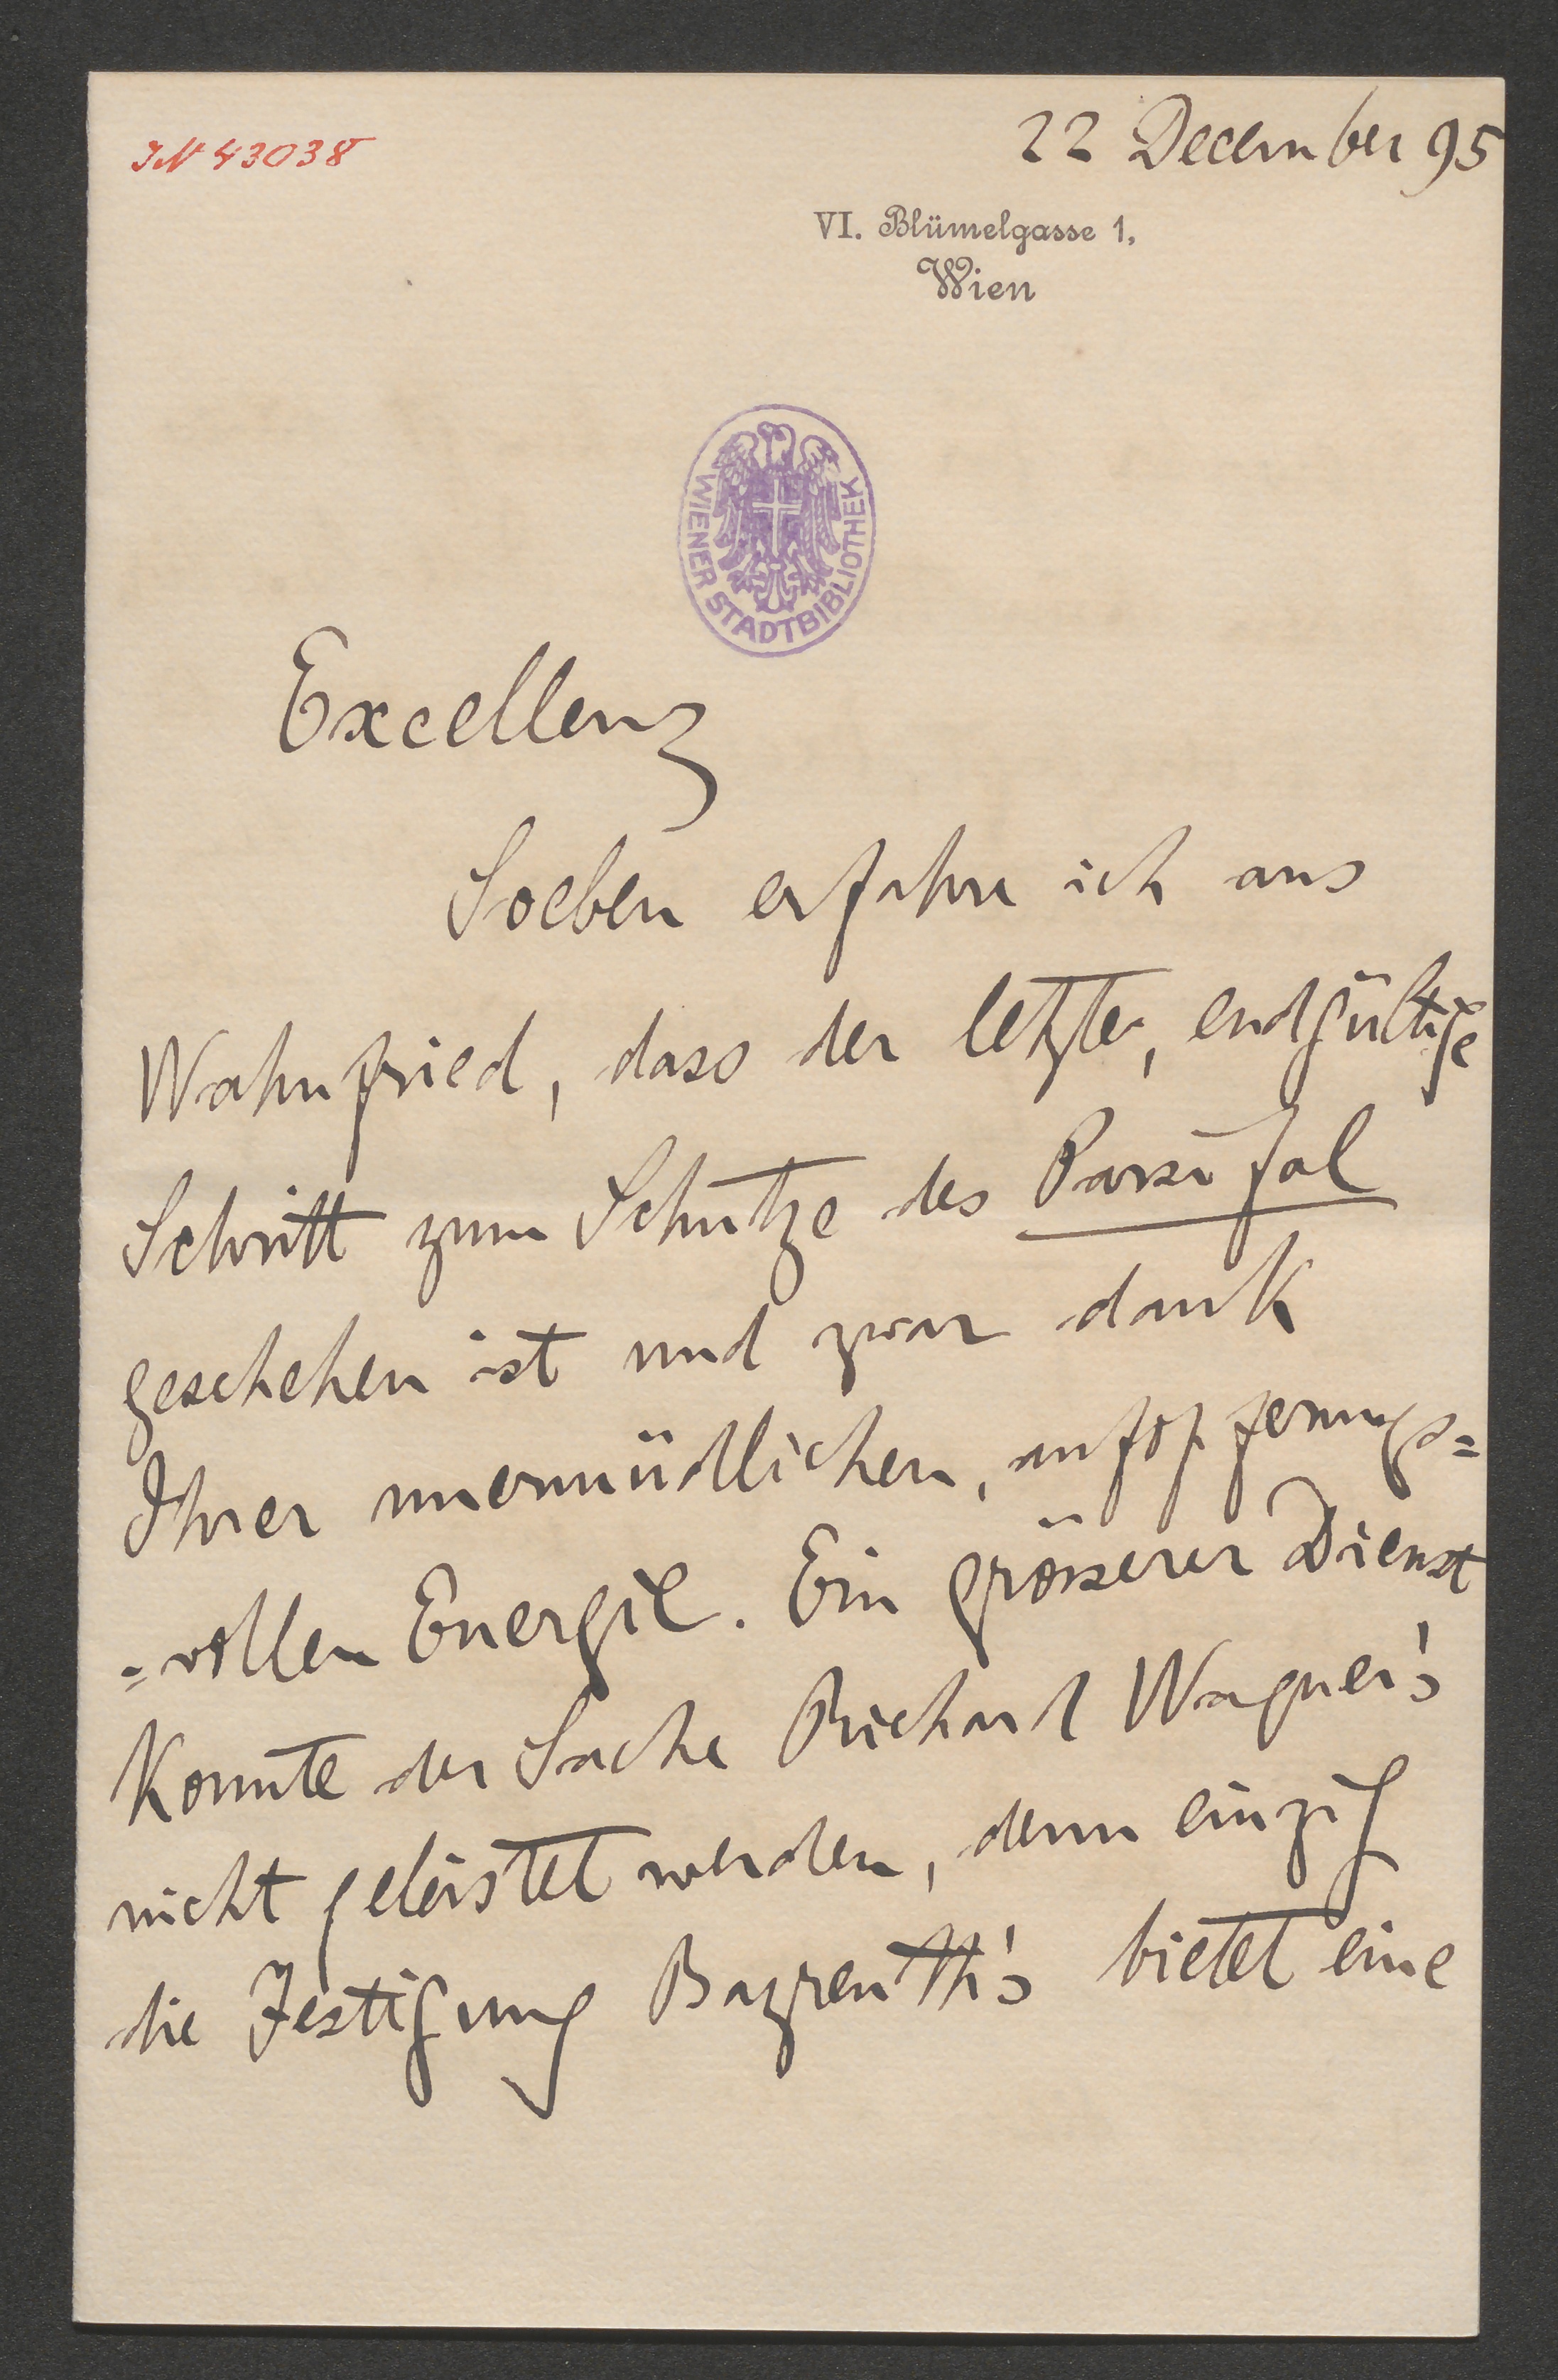 JN 43038
22 December 95
VI. Blümelgasse 1,
Wien
WIENER STADTBIBLIOTHEK
Excellenz
Soeben erfahre ich aus
Wahnfried, dass der letzte, endgültige
Schritt zum Schutze des Parsifal
geschehen ist und zwar dank
Ihrer unermüdlichen, aufopferungs=
=vollen Energie. Ein grösserer Dienst
konnte der Sache Richard Wagner's
nicht geleistet werden, denn einzig
die Festigung Bayreuth's bietet eine